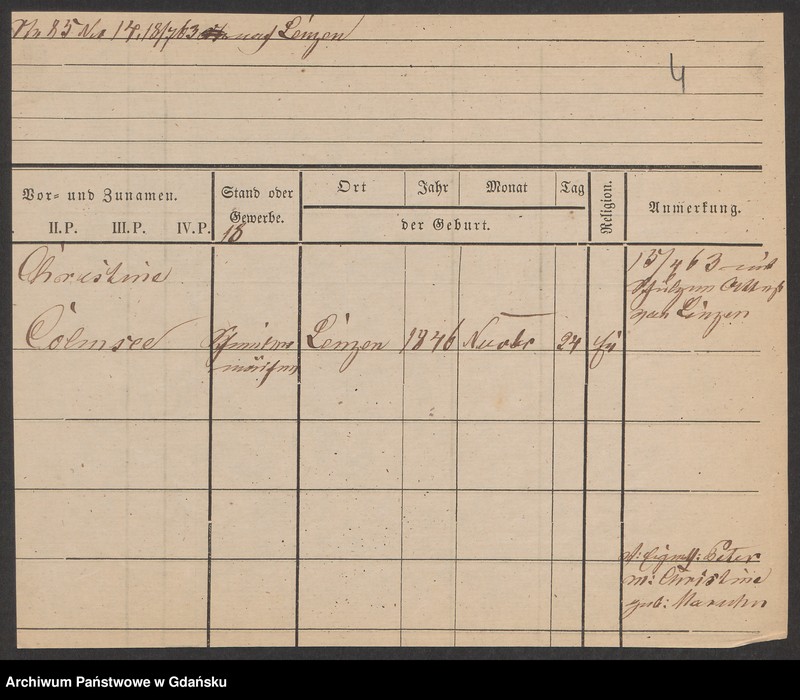 No 85 No 14. 18/7 63 nach Lenzen
4
Vor- und Zunamen.
II. P. III. P. IV. P.
Stand oder
Gewerbe.
18
Ort Jahr Monat Tag
der Geburt.
Religion.
Anmerkung.
Christine
Colmsee
Lenzen 1846 Novbr 24 Ev
15/4 63 mit
Attest
nach Lenzen
mädchen
V: Eigenth: Peter
M: Christine
geb: Maruhn
Archiwum Państwowe w Gdańsku